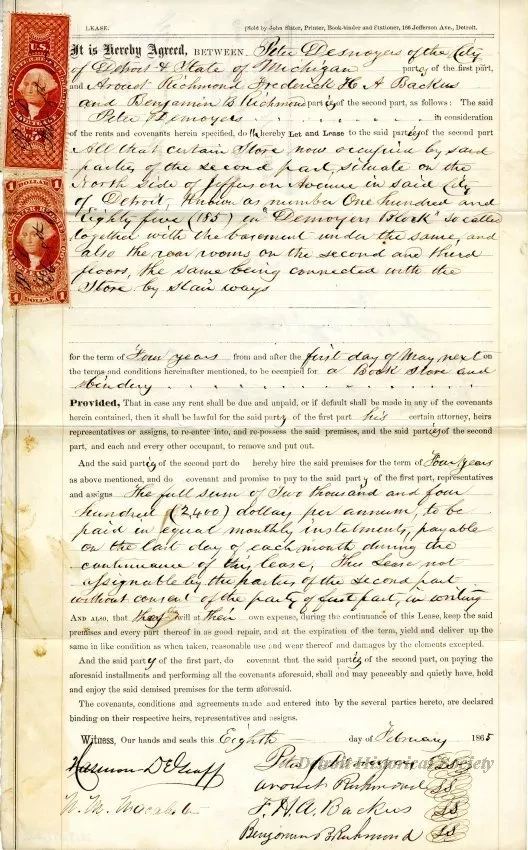 LEASE.
(Sold by John Slater, Printer, Book-binder and Stationer, 166 Jefferson Ave., Detroit.
It is Hereby Agreed, BETWEEN Peter Desnoyers of the City
of Detroit & State of Michigan party of the first part,
and Arout Richmond Frederick H. A Backus
and Benjamin B Richmond parties of the second part, as follows: The said
Peter Desnoyers in consideration
of the rents and covenants herein specified, doth hereby Let and Lease to the said parties of the second part
All that certain Store now occupied by said
parties of the second part, situate on the
North side of Jefferson Avenue in said City
of Detroit, known as number One hundred and
Eighty five (185) in "Desnoyers Block" so called
together with the basement under the same, and
also the rear rooms on the second and third
floors, the same being connected with the
Store by stair ways
for the term of Four years from and after the first day of May next on
the terms and conditions hereinafter mentioned, to be occupied for a Book Store and
Bindery
Provided, That in case any rent shall be due and unpaid, or if default shall be made in any of the covenants
herein contained, then it shall be lawful for the said party of the first part his certain attorney, heirs
representatives or assigns, to re-enter into, and re-possess the said premises, and the said parties of the second
part, and each and every other occupant, to remove and put out.
And the said parties of the second part do hereby hire the said premises for the term of Four years
as above mentioned, and do covenant and promise to pay to the said party of the first part, representatives
and assigns The full sum of Two thousand and four
hundred (2,400) dollars per annum, to be
paid in equal monthly instalments, payable
on the last day of each month during the
continuance of this lease, This Lease not
assignable by the parties of the second part
without consent of the party of first part, in writing
AND ALSO, that they will at their own expense, during the continuance of this Lease, keep the said
premises and every part thereof in as good repair, and at the expiration of the term, yield and deliver up the
same in like condition as when taken, reasonable use and wear thereof and damages by the elements excepted.
And the said party of the first part, do covenant that the said parties of the second part, on paying the
aforesaid installments and performing all the covenants aforesaid, shall and may peaceably and quietly have, hold
and enjoy the said demised premises for the term aforesaid.
The covenants, conditions and agreements made and entered into by the several parties hereto, are declared
binding on their respective heirs, representatives and assigns.
WITNESS, Our hands and seals this Eighth day of February 1865
Peter Desnoyers
Detroit Historical Society
Arout Richmond
F. H. A. Backus
Benjamin B. Richmond
U.S.
1 DOLLAR 1